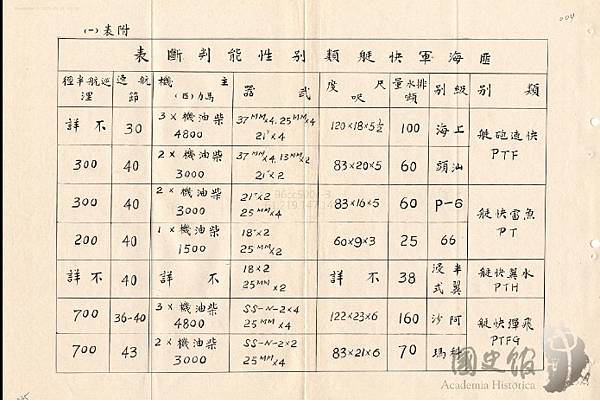 附表(一)
匪海軍快艇類別性能判斷表
類別 級別 排水量 噸 尺度 呎 武器 主機 馬力(匹) 航速 節 巡航半徑 浬
快速砲艇 PTF
上海 100 120×18×5½ 37MM×4. 25MM×4 21"×4 柴油機×3 4800 30 不詳
汕頭 60 83×20×5 37MM×4. 13MM×2 21"×2 柴油機×2 3000 40 300
魚雷快艇 PT
P-6 60 83×16×5 21"×2 25MM×4 柴油機×2 3000 40 300
66 25 60×9×3 18"×2 25MM×2 柴油機×1 1500 40 200
水翼快艇 PTH
半浸翼式 38 不詳 18×2 25MM×2 不詳 40 不詳
飛彈快艇 PTFG
阿沙 160 122×23×6 SS-N-2×4 25MM×4 柴油機×3 4800 36-40 700
科瑪 70 83×21×6 SS-N-2×2 25MM×4 柴油機×2 3000 43 700
國史館
Academia Historica